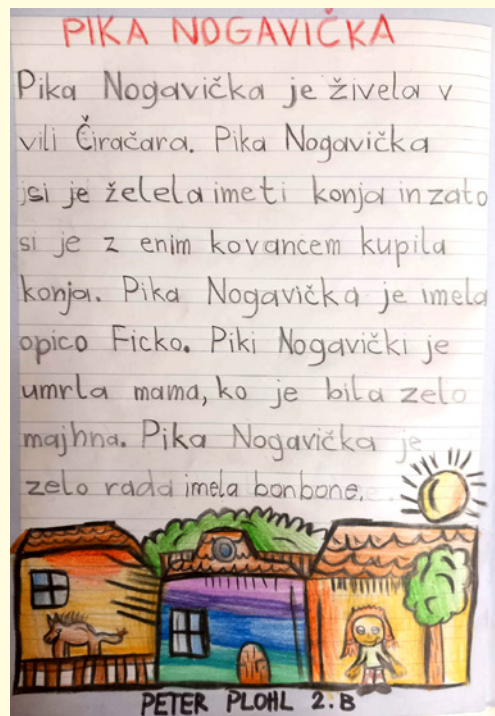 PIKA NOGAVIČKA
Pika Nogavička je živela v
vili Čiračara. Pika Nogavička
si je želela imeti konja in zato
si je z enim kovancem kupila
konja. Pika Nogavička je imela
opico Ficko. Piki Nogavički je
umrla mama, ko je bila zelo
majhna. Pika Nogavička je
zelo rada imela bonbone.
PETER PLOHL 2.B